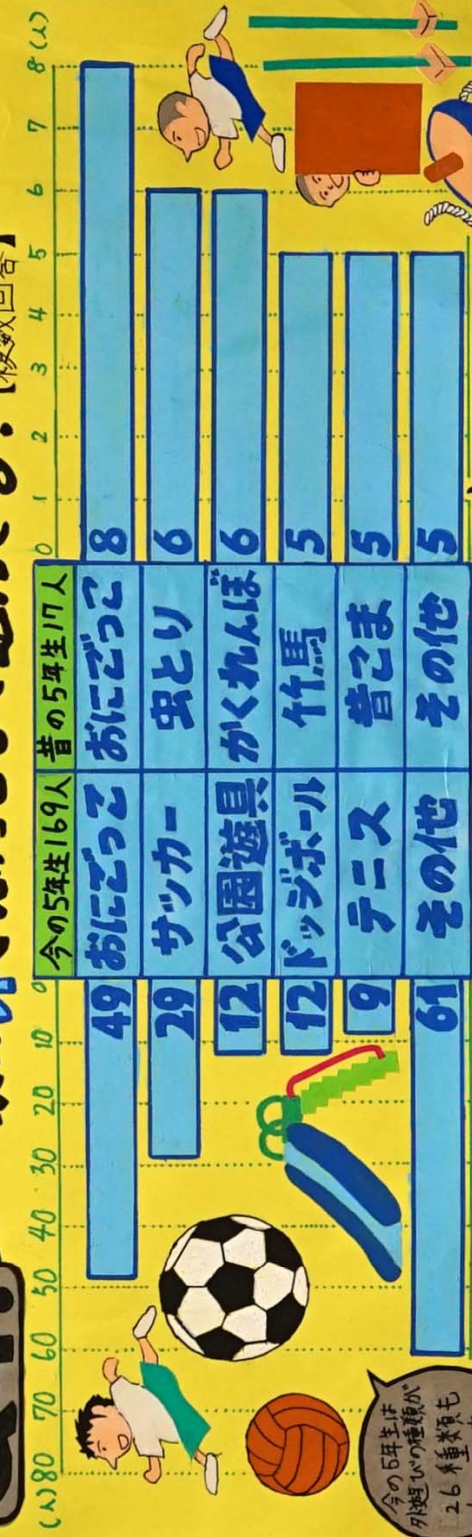 【複数回答】
(人)80 70 60 50 40 30 20 10 0
今の5年生169人 昔の5年生17人
0 1 2 3 4 5 6 7 8(人)
49 おにごっこ おにごっこ 8
29 サッカー 虫とり 6
12 公園遊具 かくれんぼ 6
12 ドッジボール 竹馬 5
9 テニス 昔こま 5
61 その他 その他 5
今の5年生は
外遊びの種類が
26種類も